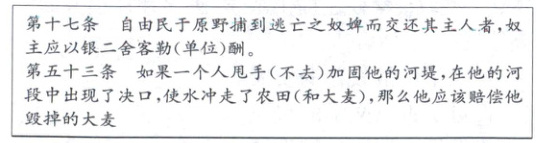 第十七条　自由民于原野捕到逃亡之奴婢而交还其主人者,奴
主应以银二舍客勒(单位)酬。
第五十三条　如果一个人甩手(不去)加固他的河堤,在他的河
段中出现了决口,使水冲走了农田(和大麦),那么他应该赔偿他
毁掉的大麦